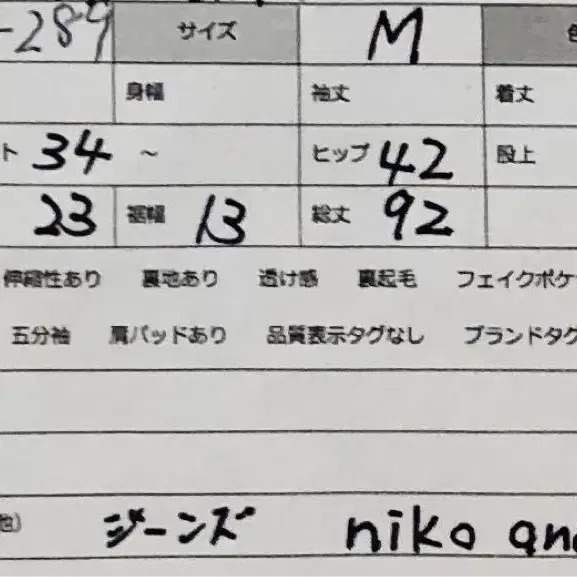 -289 サイズ M 色
身幅 袖丈 着丈
ト 34 ~ ヒップ 42 股上
23 裾幅 13 総丈 92
伸縮性あり 裏地あり 透け感 裏起毛 フェイクポケ
五分袖 肩パッドあり 品質表示タグなし ブランドタグ
他) ジーンズ niko and